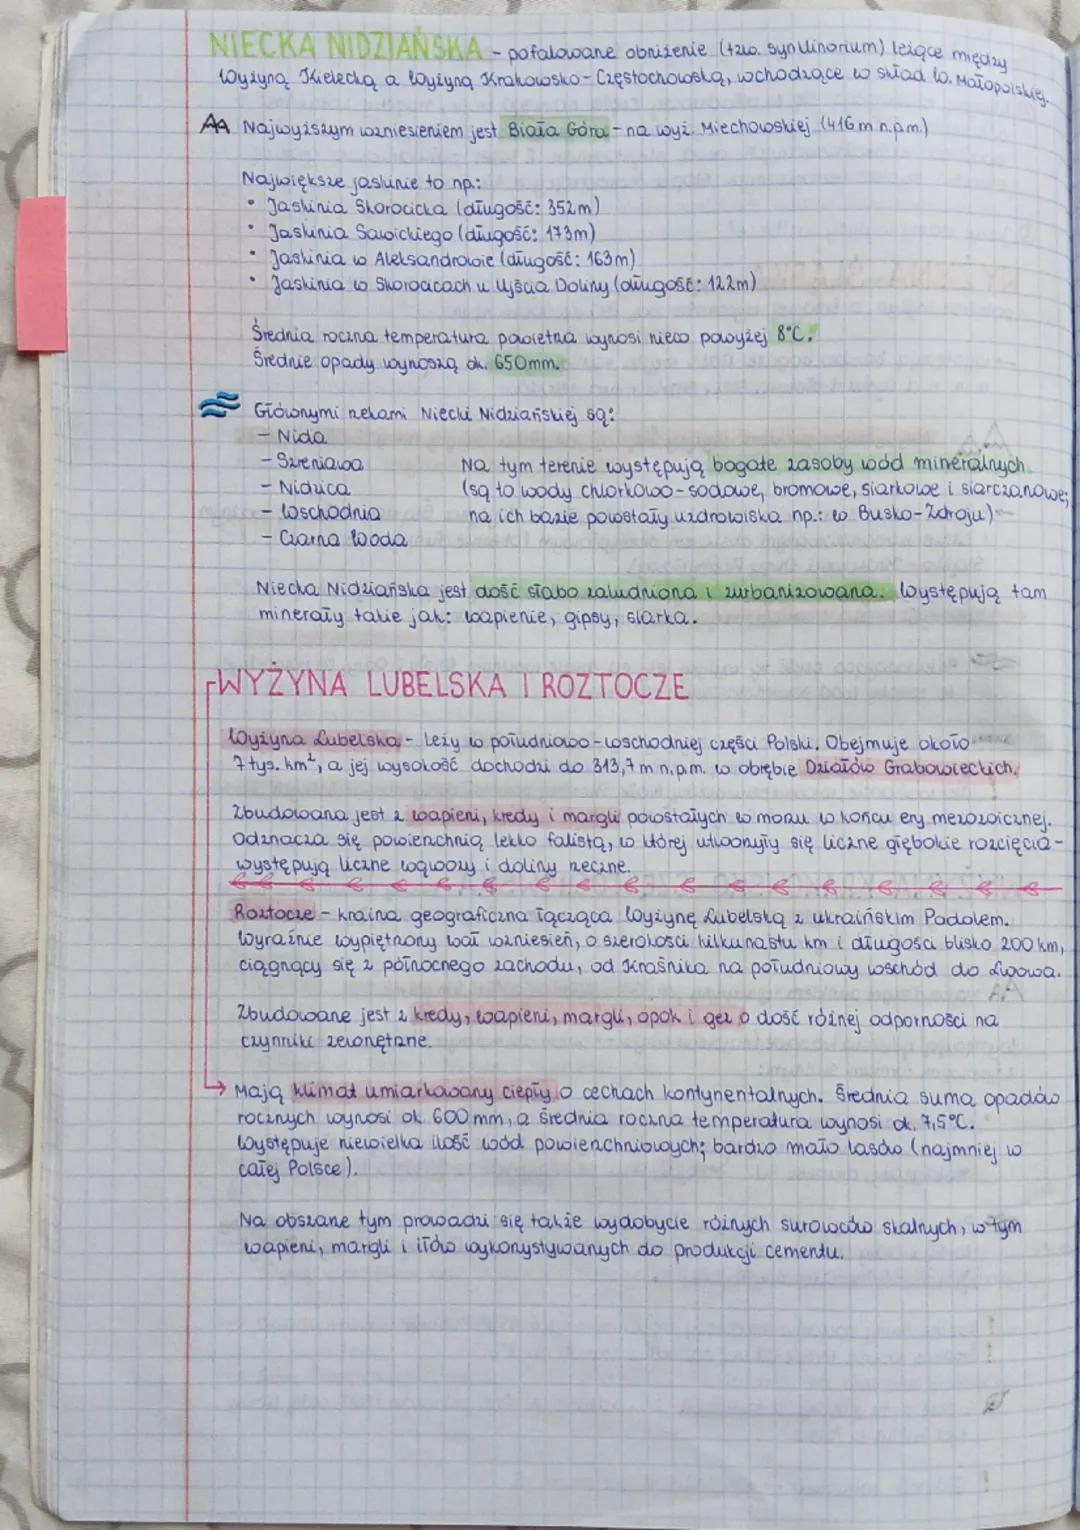 NIECKA NIDZIAŃSKA - pofałdowane obniżenie (tzw. synklinorium) leżące między
Wyżyną Kielecką a Wyżyną Krakowsko-Częstochowską, wchodzące w skład W. Małopolskiej.
Najwyższym wzniesieniem jest Biała Góra - na wyż. Miechowskiej (416 m n.p.m.)
Największe jaskinie to np.:
• Jaskinia Skorocicka (długość: 352m)
• Jaskinia Sawickiego (długość: 173m)
• Jaskinia w Aleksandrowie (długość: 163m)
• Jaskinia w Skorocicach u Ujścia Doliny (długość: 122m)
Średnia roczna temperatura powietrza wynosi nieco powyżej 8°C.
Średnie opady wynoszą ok. 650mm.
Głównymi rzekami Niecki Nidziańskiej są:
- Nida
- Szreniawa
- Nidzica
- Wschodnia
- Czarna Woda
Na tym terenie występują bogate zasoby wód mineralnych
(są to wody chlorkowo-sodowe, bromowe, siarkowe i siarczanowe;
na ich bazie powstały uzdrowiska np.: w Busko-Zdroju)
Niecka Nidziańska jest dość słabo zaludniona i zurbanizowana. Występują tam
minerały takie jak: wapienie, gipsy, siarka.
WYŻYNA LUBELSKA I ROZTOCZE
Wyżyna Lubelska - Leży w południowo-wschodniej części Polski. Obejmuje około
7 tys. km², a jej wysokość dochodzi do 313,7 m n.p.m. w obrębie Działów Grabowieckich.
Zbudowana jest z wapieni, kredy i margli powstałych w morzu w końcu ery mezozoicznej.
Odznacza się powierzchnią lekko falistą, w której utworzyły się liczne głębokie rozcięcia -
występują liczne wąwozy i doliny rzeczne.
Roztocze - kraina geograficzna łącząca Wyżynę Lubelską z ukraińskim Podolem.
Wyraźnie wypiętrzony wał wzniesień, o szerokości kilkunastu km i długości blisko 200 km,
ciągnący się z północnego zachodu, od Kraśnika na południowy wschód do Lwowa.
Zbudowane jest z kredy, wapieni, margli, opok i gez o dość różnej odporności na
czynniki zewnętrzne.
Mają klimat umiarkowany ciepły o cechach kontynentalnych. Średnia suma opadów
rocznych wynosi ok. 600 mm, a średnia roczna temperatura wynosi ok. 7,5°C.
Występuje niewielka ilość wód powierzchniowych; bardzo mało lasów (najmniej w
całej Polsce).
Na obszarze tym prowadzi się także wydobycie różnych surowców skalnych, w tym
wapieni, margli i iłów wykorzystywanych do produkcji cementu.